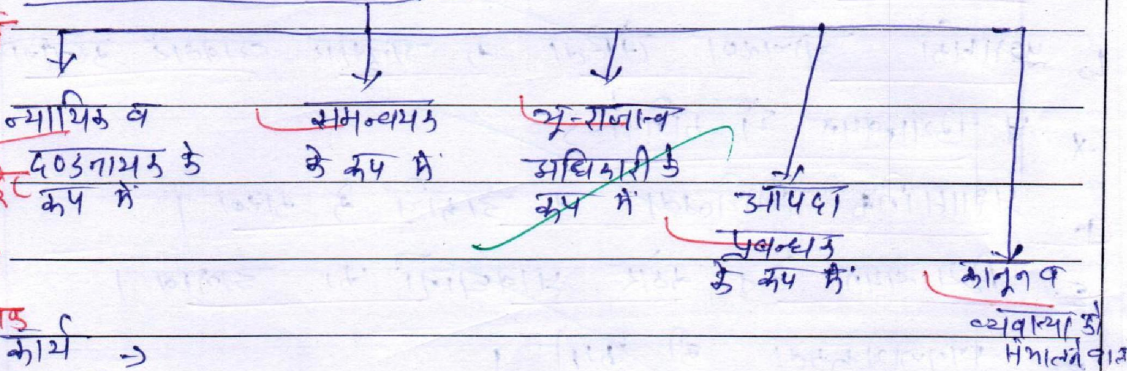 न्यायिक व
दण्डनायक के
रूप में
समन्वयक
के रूप में
भू-राजस्व
अधिकारी के
रूप में
आपदा
प्रबन्धक
के रूप में
कानून व
व्यवस्था को
संभालने वाला
कार्य →